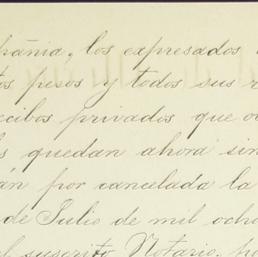 pañia, los expresados
tos pesos y todos sus r
ecibos privados que o
s quedan ahora sin
án por cancelada la
de Julio de mil ocho
el suscrito Notario, po